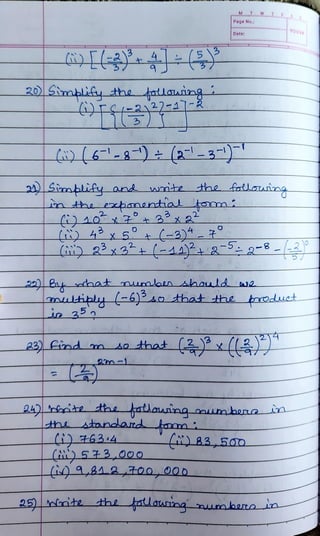 M T W T F S S
Page No.:
Date:
YOUVA
(ii) [(-2/3)³ + 4/9] ÷ (5/3)³
20) Simplify the following :
(i) [{(-2/3)²}⁻¹]⁻²
(ii) (6⁻¹ - 8⁻¹) ÷ (2⁻¹ - 3⁻¹)⁻¹
21) Simplify and write the following
in the exponential form :
(i) 10² × 7⁰ + 3³ × 2²
(ii) 4³ × 5⁰ + (-3)⁴ - 7⁰
(iii) 2³ × 3² + (-11)² + 2⁻⁵ ÷ 2⁻⁸ - (-2/5)⁰
22) By what number should we
multiply (-6)³ so that the product
is 3⁵ ?
23) Find m so that (2/9)³ × ((2/9)²)⁴
= (2/9)²ᵐ⁻¹
24) Write the following numbers in
the standard form :
(i) 763.4 (ii) 83,500
(iii) 573,000
(iv) 9,812,700,000
25) Write the following numbers in